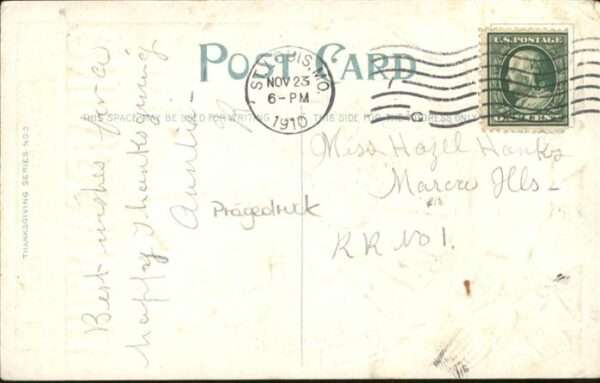 POST CARD
ST. LOUIS, MO.
NOV 23
6-PM
1910
U.S. POSTAGE
THIS SPACE MAY BE USED FOR WRITING
THIS SIDE FOR THE ADDRESS ONLY
THANKSGIVING SERIES NO. 3
Best wishes for a
happy Thanksgiving
Auntie
Miss Hazel Hanks
Ills-
R R No 1.
Prägedruck